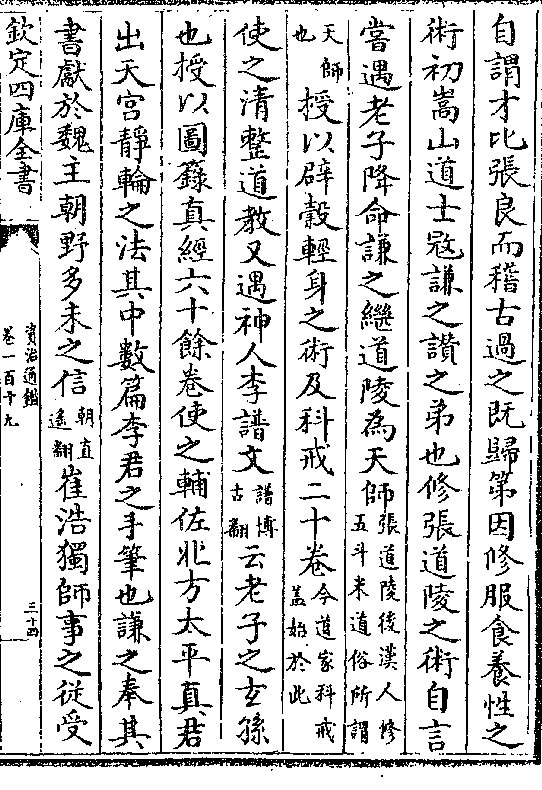 自謂才比張良而稽古過之既歸第因修服食養性之
術初嵩山道士寇謙之讃之弟也修張道陵之術自言
嘗遇老子降命謙之繼道陵為天師張道陵後漢人修五斗米道俗所謂
天師也授以辟穀輕身之術及科戒二十卷今道家科戒蓋始於此
使之清整道教又遇神人李譜文譜博古翻云老子之玄孫
也授以圖籙真經六十餘卷使之輔佐北方太平真君
出天宫靜輪之法其中數篇李君之手筆也謙之奉其
書獻於魏主朝野多未之信朝直遥翻崔浩獨師事之從受
欽定四庫全書
資治通鑑
卷一百十九
三十四